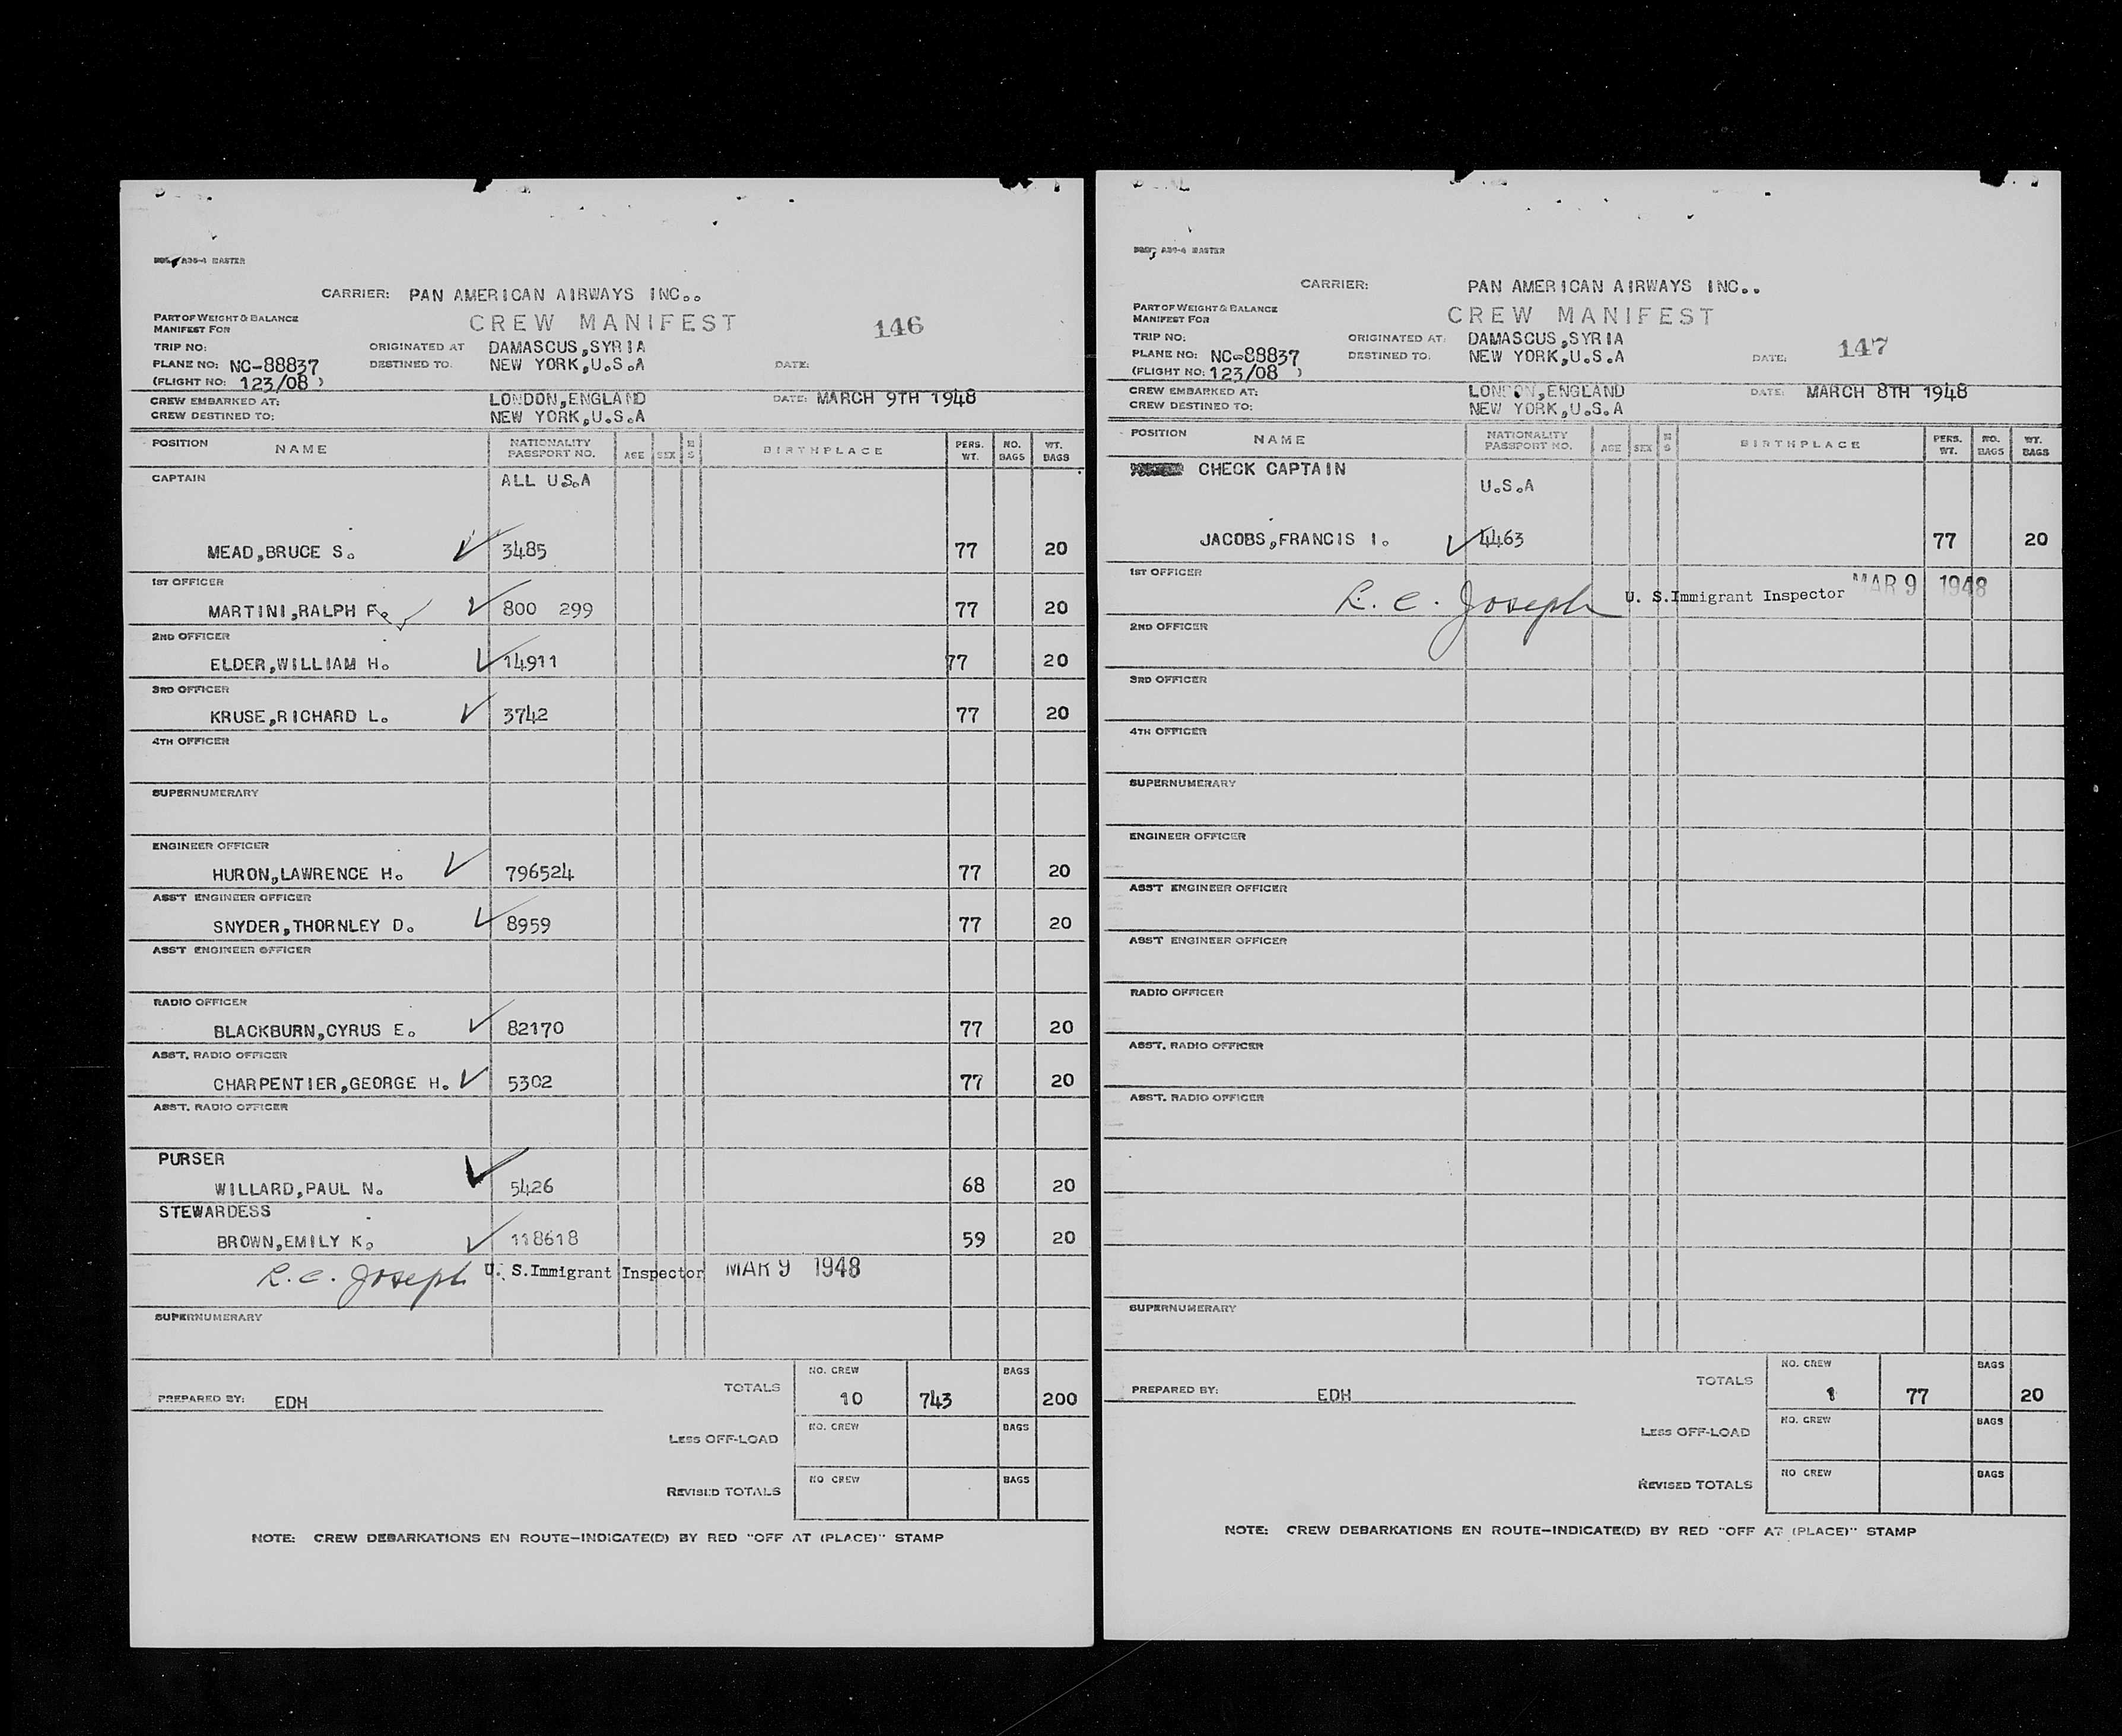 A36-4 MASTER
CARRIER: PAN AMERICAN AIRWAYS INC..
PART OF WEIGHT & BALANCE
MANIFEST FOR
CREW MANIFEST
146
TRIP NO: ORIGINATED AT DAMASCUS,SYRIA
PLANE NO: NC-88837 DESTINED TO: NEW YORK,U.S.A DATE:
(FLIGHT NO: 123/08 )
CREW EMBARKED AT: LONDON,ENGLAND DATE: MARCH 9TH 1948
CREW DESTINED TO: NEW YORK,U.S.A
POSITION NAME NATIONALITY PASSPORT NO. AGE SEX M S BIRTHPLACE PERS. WT. NO. BAGS WT. BAGS
CAPTAIN ALL U.S.A
MEAD,BRUCE S. 3485 77 20
1ST OFFICER
MARTINI,RALPH F. 800 299 77 20
2ND OFFICER
ELDER,WILLIAM H. 14911 77 20
3RD OFFICER
KRUSE,RICHARD L. 3742 77 20
4TH OFFICER
SUPERNUMERARY
ENGINEER OFFICER
HURON,LAWRENCE H. 796524 77 20
ASS'T ENGINEER OFFICER
SNYDER,THORNLEY D. 8959 77 20
ASS'T ENGINEER OFFICER
RADIO OFFICER
BLACKBURN,CYRUS E. 82170 77 20
ASST. RADIO OFFICER
CHARPENTIER,GEORGE H. 5302 77 20
ASST. RADIO OFFICER
PURSER
WILLARD,PAUL N. 5426 68 20
STEWARDESS
BROWN,EMILY K. 118618 59 20
R. C. Joseph U. S.Immigrant Inspector MAR 9 1948
SUPERNUMERARY
NO. CREW BAGS
TOTALS 10 743 200
PREPARED BY: EDH
NO. CREW BAGS
LESS OFF-LOAD
NO CREW BAGS
REVISED TOTALS
NOTE: CREW DEBARKATIONS EN ROUTE-INDICATE(D) BY RED "OFF AT (PLACE)" STAMP
A36-4 MASTER
CARRIER: PAN AMERICAN AIRWAYS INC..
PART OF WEIGHT & BALANCE
MANIFEST FOR
CREW MANIFEST
TRIP NO: ORIGINATED AT: DAMASCUS,SYRIA
PLANE NO: NC-88837 DESTINED TO: NEW YORK,U.S.A DATE: 147
(FLIGHT NO: 123/08 )
CREW EMBARKED AT: LONDON,ENGLAND DATE: MARCH 8TH 1948
CREW DESTINED TO: NEW YORK,U.S.A
POSITION NAME NATIONALITY PASSPORT NO. AGE SEX M S BIRTHPLACE PERS. WT. NO. BAGS WT. BAGS
CHECK CAPTAIN
U.S.A
JACOBS,FRANCIS I. 4463 77 20
1ST OFFICER
R. C. Joseph U. S.Immigrant Inspector MAR 9 1948
2ND OFFICER
3RD OFFICER
4TH OFFICER
SUPERNUMERARY
ENGINEER OFFICER
ASS'T ENGINEER OFFICER
ASS'T ENGINEER OFFICER
RADIO OFFICER
ASST. RADIO OFFICER
ASST. RADIO OFFICER
SUPERNUMERARY
NO. CREW BAGS
TOTALS 1 77 20
PREPARED BY: EDH
NO. CREW BAGS
LESS OFF-LOAD
NO CREW BAGS
REVISED TOTALS
NOTE: CREW DEBARKATIONS EN ROUTE-INDICATE(D) BY RED "OFF AT (PLACE)" STAMP